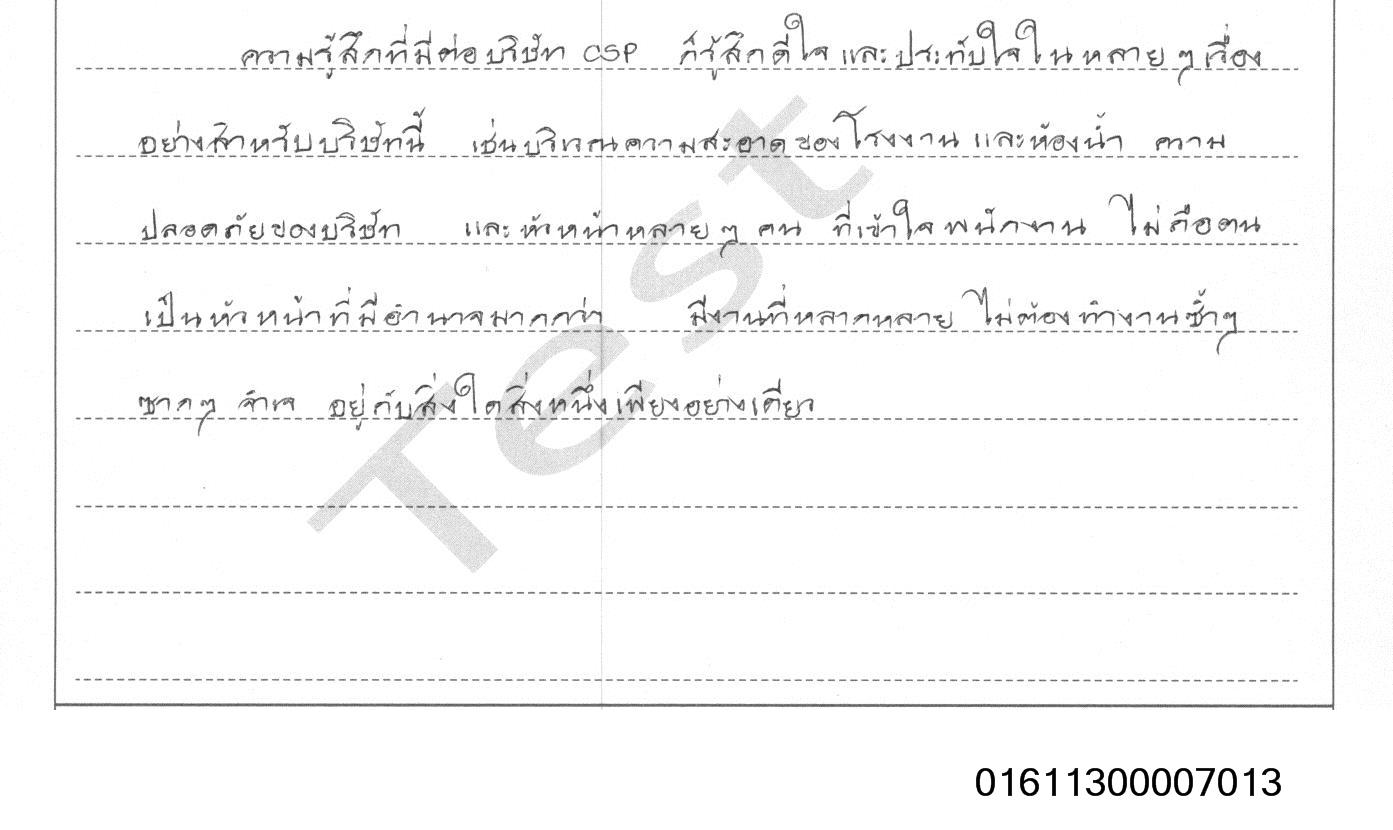 ความรู้สึกที่มีต่อบริษัท CSP ก็รู้สึกดีใจและประทับใจในหลายๆเรื่อง
อย่างสำหรับบริษัทนี้ เช่นบริเวณความสะอาดของโรงงานและห้องน้ำ ความ
ปลอดภัยของบริษัท และหัวหน้าหลายๆคน ที่เข้าใจพนักงาน ไม่ถือตน
เป็นหัวหน้าที่มีอำนาจมากกว่า มีงานที่หลากหลาย ไม่ต้องทำงานซ้ำๆ
ซากๆ จำเจ อยู่กับสิ่งใดสิ่งหนึ่งเพียงอย่างเดียว
Test
01611300007013